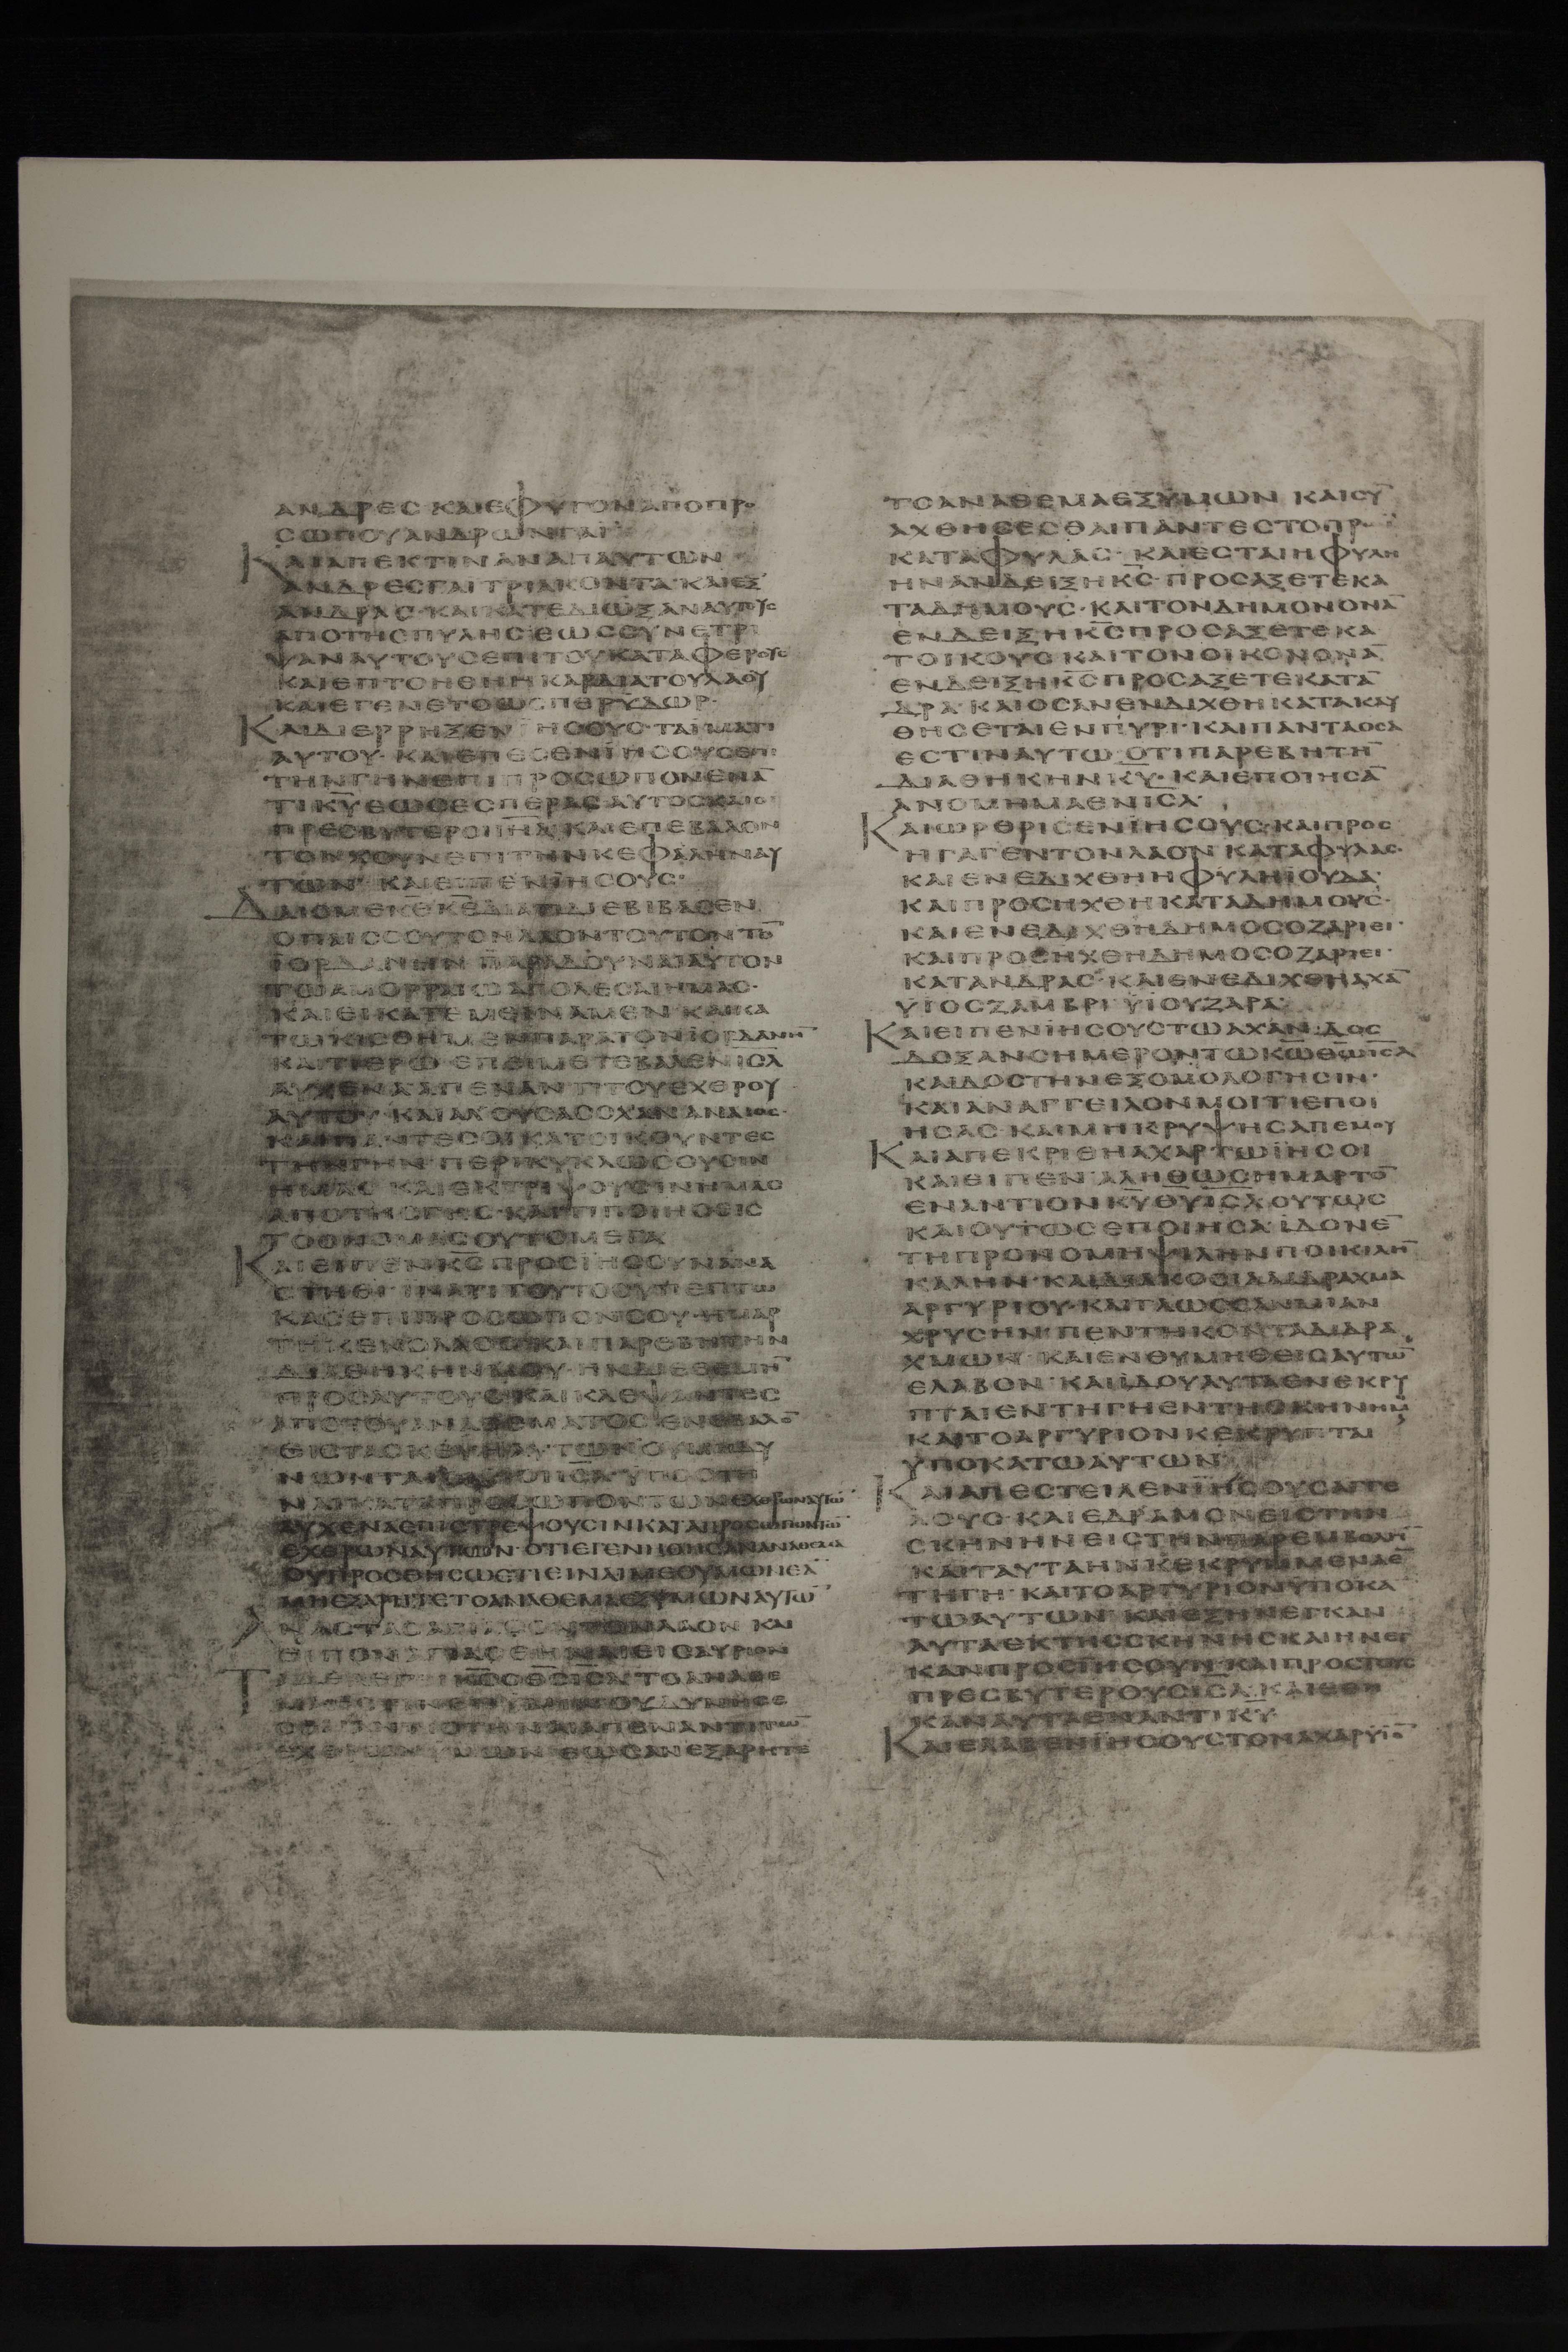 ΑΝΔΡΕϹ ΚΑΙΕΦΥΓΟΝΑΠΟΠΡο
ϹΩΠΟΥΑΝΔΡΩΝΓΑΙ
ΚΑΙΑΠΕΚΤΙΝΑΝΑΠΑΥΤΩΝ
ΑΝΔΡΕϹΓΑΙΤΡΙΑΚΟΝΤΑ·ΚΑΙΕΞ
ΑΝΔΡΑϹ·ΚΑΙΚΑΤΕΔΙΩΞΑΝΑΥΤουϲ
ΑΠΟΤΗϹΠΥΛΗϹΕΩϹϹΥΝΕΤΡΙ
ΨΑΝΑΥΤΟΥϹΕΠΙΤΟΥΚΑΤΑΦΕΡουϲ
ΚΑΙΕΠΤΟΗΘΗΗΚΑΡΔΙΑΤΟΥΛΑΟΥ
ΚΑΙΕΓΕΝΕΤΟΩϹΠΕΡΫΔΩΡ·
ΚΑΙΔΙΕΡΡΗΞΕΝΪΗϹΟΥϹ·ΤΑΪΜΑΤΙ
ΑΥΤΟΥ·ΚΑΙΕΠΕϹΕΝΪΗϹΟΥϹΕΠΙ
ΤΗΝΓΗΝΕΠΙΠΡΟϹΩΠΟΝΕΝΑ̅
ΤΙΚ̅Υ̅ΕΩϹΕϹΠΕΡΑϹΑΥΤΟϹΚΑΙΟΙ
ΠΡΕϹΒΥΤΕΡΟΙΙ̅Η̅Λ̅·ΚΑΙΕΠΕΒΑΛΟΝ
ΤΟΝΧΟΥΝΕΠΙΤΗΝΚΕΦΑΛΗΝΑΥ
ΤΩΝ· ΚΑΙΕΙΠΕΝΪΗϹΟΥϹ·
ΔΑΙΟΜΕΚ̅Ε̅Κ̅Ε̅ΔΙΑΤΙΔΙΕΒΙΒΑϹΕΝ
ΟΠΑΙϹϹΟΥΤΟΝΛΑΟΝΤΟΥΤΟΝΤΟ̅
ΪΟΡΔΑΝΗΝ ΠΑΡΑΔΟΥΝΑΙΑΥΤΟΝ
ΤΩΑΜΟΡΡΑΙΩΑΠΟΛΕϹΑΙΗΜΑϹ·
ΚΑΙΕΙΚΑΤΕΜΕΙΝΑΜΕΝ ΚΑΙΚΑ
ΤΩΚΙϹΘΗΜΕΝΠΑΡΑΤΟΝΪΟΡΔΑΝΗ̅
ΚΑΙΤΙΕΡΩ·ΕΠΕΙΜΕΤΕΒΑΛΕΝΙ̅Ϲ̅Λ̅
ΑΥΧΕΝΑΑΠΕΝΑΝΤΙΤΟΥΕΧΘΡΟΥ
ΑΥΤΟΥ·ΚΑΙΑΚΟΥϹΑϹΟΧΑΝΑΝΑΙΟϹ·
ΚΑΙΠΑΝΤΕϹΟΙΚΑΤΟΙΚΟΥΝΤΕϹ
ΤΗΝΓΗΝ·ΠΕΡΙΚΥΚΛΩϹΟΥϹΙΝ
ΗΜΑϹ ΚΑΙΕΚΤΡΙΨΟΥϹΙΝΗΜΑϹ
ΑΠΟΤΗϹΓΗϹ·ΚΑΙΤΙΠΟΙΗϹΕΙϹ
ΤΟΟΝΟΜΑϹΟΥΤΟΜΕΓΑ
ΚΑΙΕΙΠΕΝΚ̅Ϲ̅ΠΡΟϹΪΗϹΟΥΝΑΝΑ
ϹΤΗΘΙ ΪΝΑΤΙΤΟΥΤΟϹΥΠΕΠΤΩ
ΚΑϹΕΠΙΠΡΟϹΩΠΟΝϹΟΥ·ΗΜΑΡ
ΤΗΚΕΝΟΛΑΟϹ·ΚΑΙΠΑΡΕΒΗΤΗΝ
ΔΙΑΘΗΚΗΝΜΟΥ·ΗΝΔΙΕΘΕΜΗ̅
ΠΡΟϹΑΥΤΟΥϹ·ΚΑΙΚΛΕΨΑΝΤΕϹ
ΑΠΟΤΟΥΑΝΑΘΕΜΑΤΟϹΕΝΕΒΑΛΟ̅
ΕΙϹΤΑϹΚΕΥΗΑΥΤΩΝ
ΑΥΧΕΝΑΕΠΙϹΤΡΕΨΟΥϹΙΝΚΑΤΑΠΡΟϹΩΠΟΝΤΩ̅
ΕΧΘΡΩΝΑΥΤΩΝ·ΟΤΙΕΓΕΝΗΘΗϹΑΝΑΝΑΘΕΜΑ
ΟΥΠΡΟϹΘΗϹΩΕΤΙΕΙΝΑΙΜΕΘΥΜΩΝΕΑ̅
ΜΗΕΞΑΡΗΤΕΤΟΑΝΑΘΕΜΑΕΞΥΜΩΝΑΥΤΩ̅
ΑΝΑϹΤΑϹΑΓΙΑϹΟΝΤΟΝΛΑΟΝ ΚΑΙ
ΕΙΠΟΝΑΓΙΑϹΘΗΝΑΙΕΙϹΑΥΡΙΟΝ
ΕΧΘΡΩΝΥΜΩΝ ΕΩϹΑΝΕΞΑΡΗΤΕ
ΤΟΑΝΑΘΕΜΑΕΞΫΜΩΝ ΚΑΙϹΥ̅
ΑΧΘΗϹΕϹΘΑΙΠΑΝΤΕϹΤΟΠΡΩΪ
ΚΑΤΑΦΥΛΑϹ· ΚΑΙΕϹΤΑΙΗΦΥΛΗ
ΗΝΑΝΔΕΙΞΗΚ̅Ϲ̅·ΠΡΟϹΑΞΕΤΕΚΑ
ΤΑΔΗΜΟΥϹ·ΚΑΙΤΟΝΔΗΜΟΝΟΝΑ̅
ΕΝΔΕΙΞΗΚ̅Ϲ̅ΠΡΟϹΑΞΕΤΕΚΑ
ΤΟΙΚΟΥϹ ΚΑΙΤΟΝΟΙΚΟΝΟΝΑ̅
ΕΝΔΕΙΞΗΚ̅Ϲ̅ΠΡΟϹΑΞΕΤΕΚΑΤΑ̅
ΔΡΑ·ΚΑΙΟϹΑΝΕΝΔΙΧΘΗΚΑΤΑΚΑΥ
ΘΗϹΕΤΑΙΕΝΠΥΡΙ·ΚΑΙΠΑΝΤΑΟϹΑ
ΕϹΤΙΝΑΥΤΩ ΟΤΙΠΑΡΕΒΗΤΗ̅
ΔΙΑΘΗΚΗΝΚ̅Υ̅·ΚΑΙΕΠΟΙΗϹΑ̅
ΑΝΟΜΗΜΑΕΝΙ̅Ϲ̅Λ̅·
ΚΑΙΩΡΘΡΙϹΕΝΪΗϹΟΥϹ·ΚΑΙΠΡΟϹ
ΗΓΑΓΕΝΤΟΝΛΑΟΝ ΚΑΤΑΦΥΛΑϹ·
ΚΑΙΕΝΕΔΙΧΘΗΗΦΥΛΗΪΟΥΔΑ·
ΚΑΙΠΡΟϹΗΧΘΗΚΑΤΑΔΗΜΟΥϹ·
ΚΑΙΕΝΕΔΙΧΘΗΔΗΜΟϹΟΖΑΡΙΕΙ·
ΚΑΙΠΡΟϹΗΧΘΗΔΗΜΟϹΟΖΑΡΙΕΙ·
ΚΑΤΑΝΔΡΑϹ·ΚΑΙΕΝΕΔΙΧΘΗΑΧΑ̅
ΫΙΟϹΖΑΜΒΡΙ ΫΙΟΥΖΑΡΑ·
ΚΑΙΕΙΠΕΝΪΗϹΟΥϹΤΩΑΧΑΝ·ΔΟϹ
ΔΟΞΑΝϹΗΜΕΡΟΝΤΩΚ̅Ω̅Θ̅Ω̅Ι̅Ϲ̅Λ̅
ΚΑΙΔΟϹΤΗΝΕΞΟΜΟΛΟΓΗϹΙΝ·
ΚΑΙΑΝΑΓΓΕΙΛΟΝΜΟΙΤΙΕΠΟΙ
ΗϹΑϹ·ΚΑΙΜΗΚΡΥΨΗϹΑΠΕΜΟΥ
ΚΑΙΑΠΕΚΡΙΘΗΑΧΑΡΤΩΪΗϹΟΙ
ΚΑΙΕΙΠΕΝ ΑΛΗΘΩϹΗΜΑΡΤΟ̅
ΕΝΑΝΤΙΟΝΚ̅Υ̅Θ̅Υ̅Ι̅Ϲ̅Λ̅ΟΥΤΩϹ
ΚΑΙΟΥΤΩϹΕΠΟΙΗϹΑ·ΪΔΟΝΕ̅
ΤΗΠΡΟΝΟΜΗΨΙΛΗΝΠΟΙΚΙΛΗ̅
ΚΑΛΗΝ·ΚΑΙΔΙΑΚΟϹΙΑΔΙΔΡΑΧΜΑ
ΑΡΓΥΡΙΟΥ·ΚΑΙΓΛΩϹϹΑΝΜΙΑΝ
ΧΡΥϹΗΝ·ΠΕΝΤΗΚΟΝΤΑΔΙΔΡΑ
ΧΜΩΝ· ΚΑΙΕΝΘΥΜΗΘΕΙϹΑΥΤΩ̅
ΕΛΑΒΟΝ·ΚΑΙΪΔΟΥΑΥΤΑΕΝΕΚΡΥ
ΠΤΑΙΕΝΤΗΓΗΕΝΤΗϹΚΗΝΗΜ̅
ΚΑΙΤΟΑΡΓΥΡΙΟΝΚΕΚΡΥΠΤΑΙ
ΫΠΟΚΑΤΩΑΥΤΩΝ·
ΚΑΙΑΠΕϹΤΕΙΛΕΝΪΗϹΟΥϹΑΓΓΕ
ΛΟΥϹ·ΚΑΙΕΔΡΑΜΟΝΕΙϹΤΗΝ
ϹΚΗΝΗΝΕΙϹΤΗΝΠΑΡΕΜΒΟΛΗ̅
ΚΑΙΤΑΥΤΑΗΝΚΕΚΡΥΜΜΕΝΑΕ̅
ΤΗΓΗ· ΚΑΙΤΟΑΡΓΥΡΙΟΝΫΠΟΚΑ
ΤΩΑΥΤΩΝ· ΚΑΙΕΞΗΝΕΓΚΑΝ
ΑΥΤΑΕΚΤΗϹϹΚΗΝΗϹΚΑΙΗΝΕΓ
ΚΑΝΠΡΟϹΪΗϹΟΥΝ·ΚΑΙΠΡΟϹΤΟΥϹ
ΠΡΕϹΒΥΤΕΡΟΥϹΙ̅Ϲ̅Λ̅·ΚΑΙΕΘΗ
ΚΑΝΑΥΤΑΕΝΑΝΤΙΚ̅Υ̅·
ΚΑΙΕΛΑΒΕΝΪΗϹΟΥϹΤΟΝΑΧΑΡΫΙΟ̅